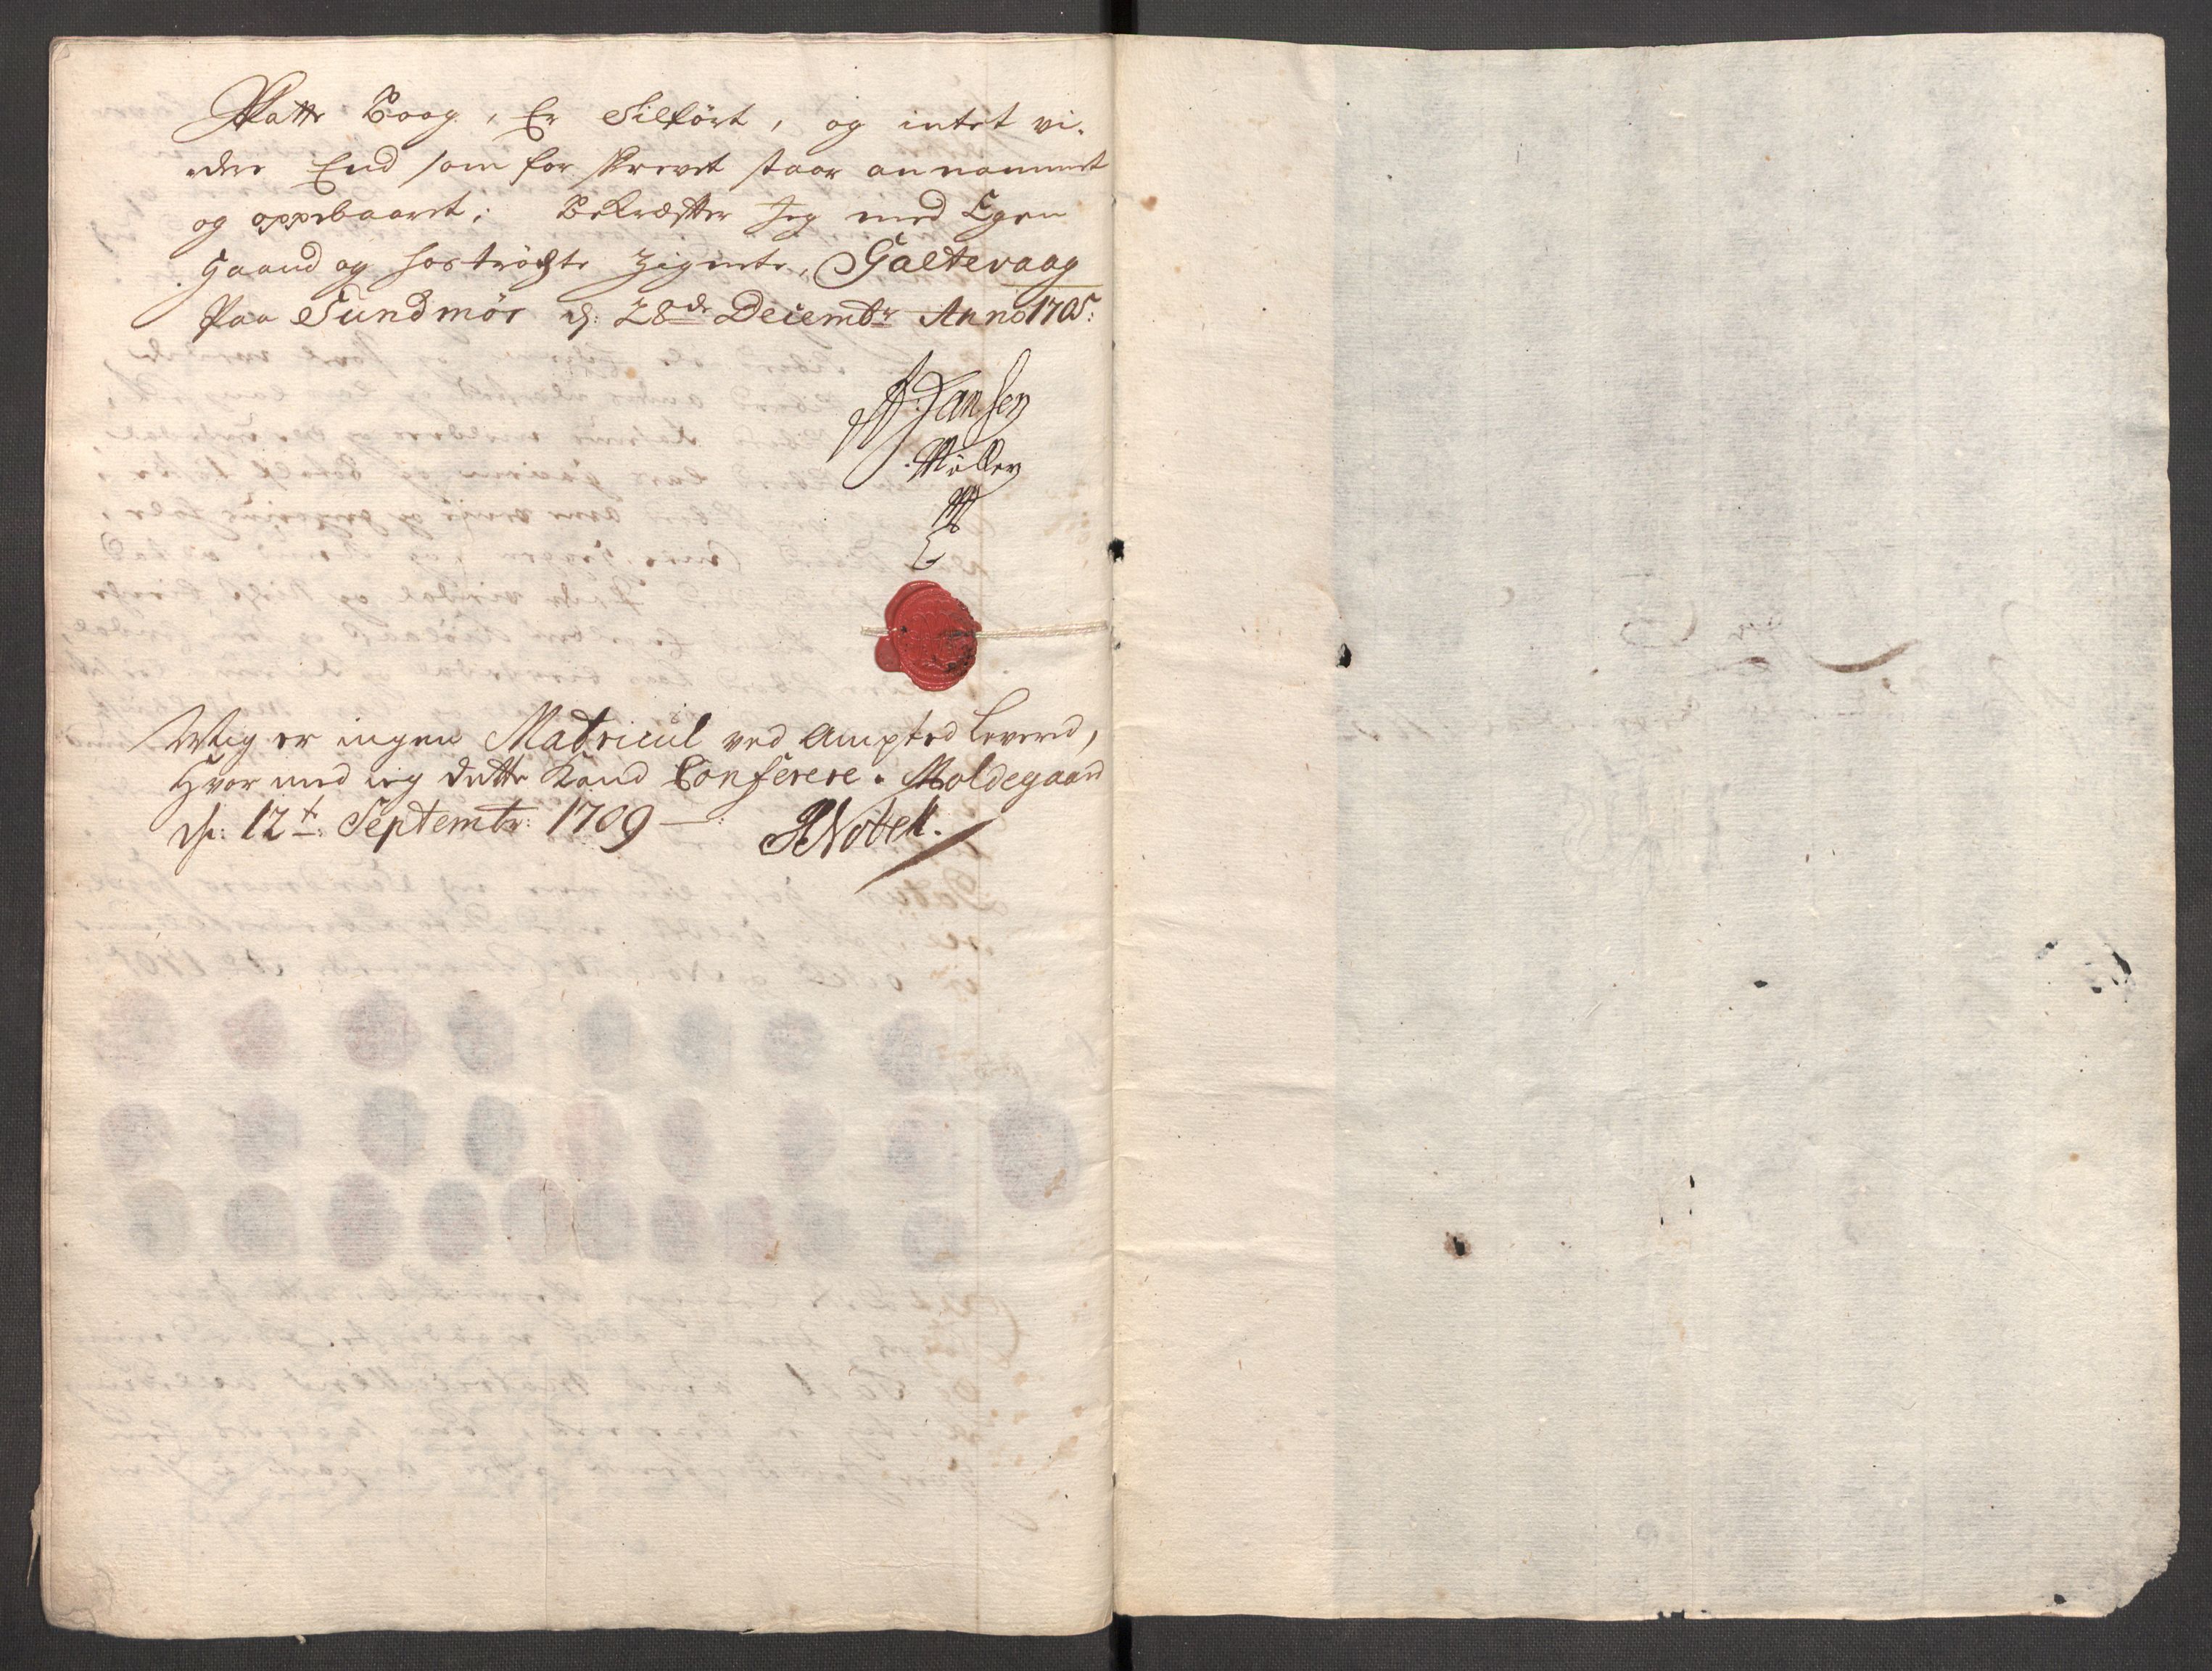 Skatte Boog, Er Tilført, og intet vi-
dere End som for skrevet staar annammet
og oppebaaret; Bekræfter Jeg med Egen
Haand og hostrøchte Zignete, Galtevaag
Paa Sundmør d: 28de Decembr Anno 1705:
Jansen
Møller
Mig er ingen Matricul ved Ampted Leverd,
Hvor med ieg dette Kand Conferere. Moldegaard
d: 12t: Septembr: 1709